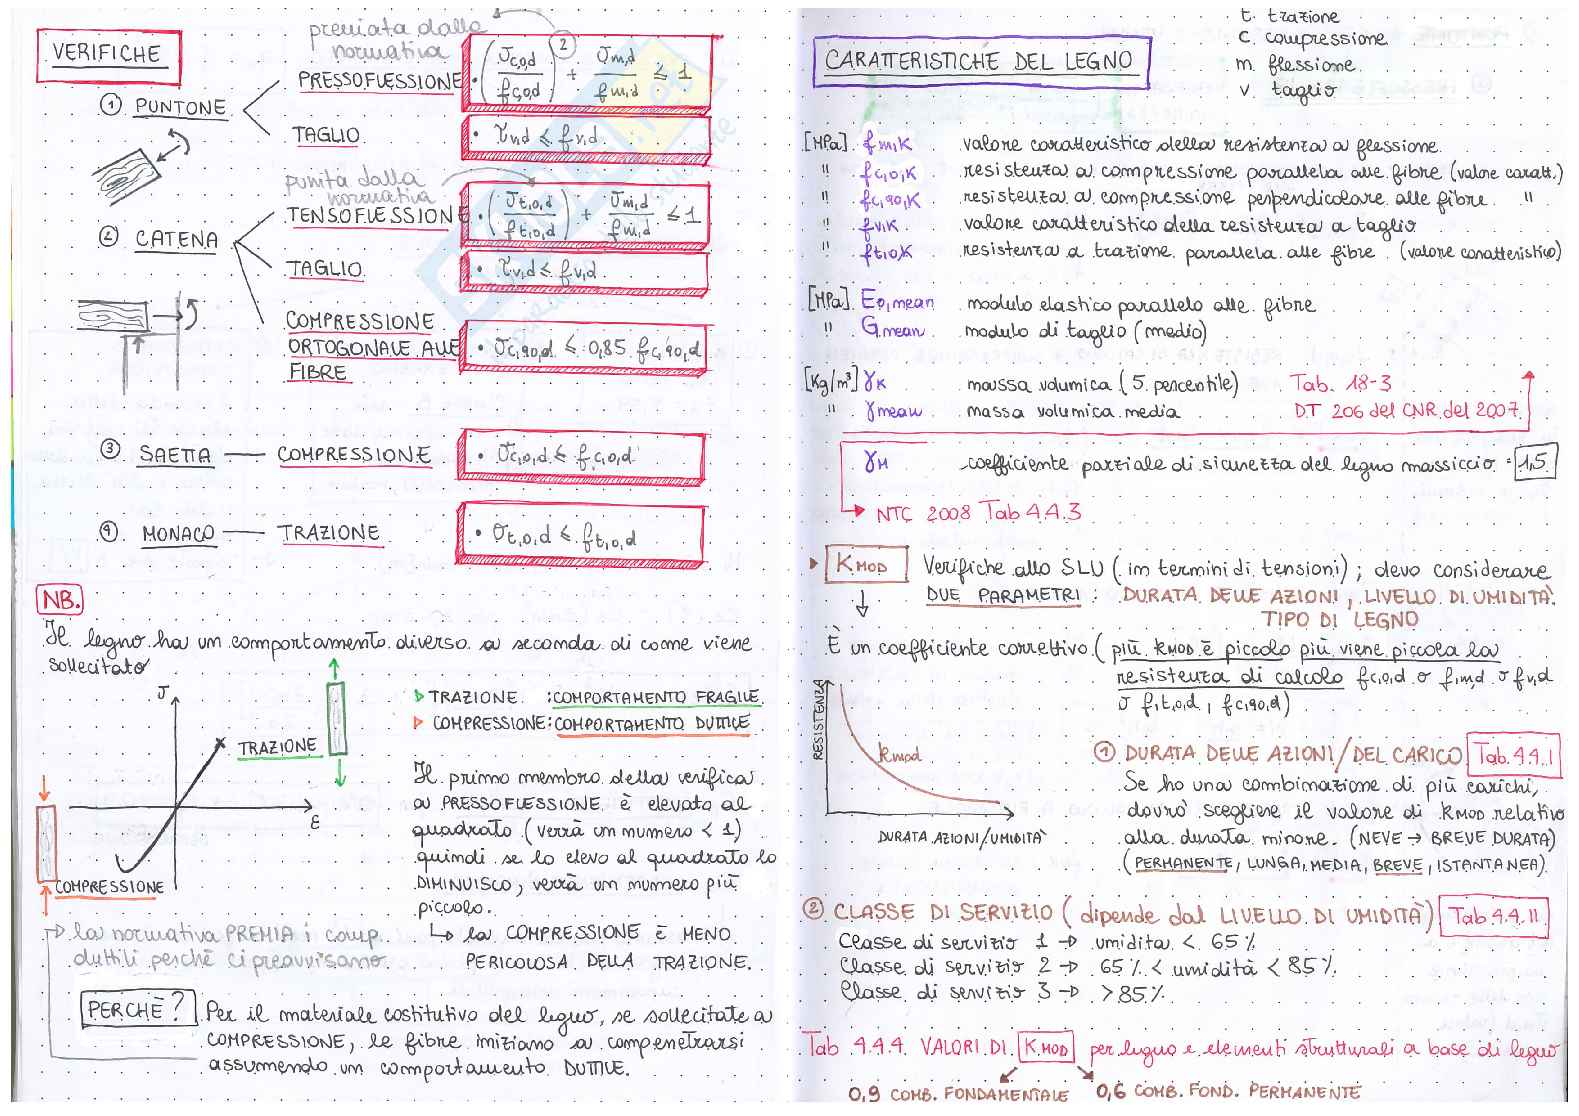 VERIFICHE
premiata dalla
normativa
① PUNTONE
PRESSOFLESSIONE
• (σc,0,d / fc,0,d)² + σm,d / fm,d ≤ 1
TAGLIO
• τv,d ≤ fv,d
punita dalla
normativa
② CATENA
TENSOFLESSIONE
• (σt,0,d / ft,0,d) + σm,d / fm,d ≤ 1
TAGLIO
• τv,d ≤ fv,d
COMPRESSIONE
ORTOGONALE ALLE
FIBRE
• σc,90,d ≤ 0,85 fc,90,d
③ SAETTA — COMPRESSIONE
• σc,0,d ≤ fc,0,d
④ MONACO — TRAZIONE
• σt,0,d ≤ ft,0,d
NB.
Il legno ha un comportamento diverso a seconda di come viene
sollecitato
σ
TRAZIONE
ε
COMPRESSIONE
▷ TRAZIONE : COMPORTAMENTO FRAGILE
▷ COMPRESSIONE: COMPORTAMENTO DUTTILE
Il primo membro della verifica
a PRESSOFLESSIONE è elevato al
quadrato (verrà un numero < 1)
quindi se lo elevo al quadrato lo
DIMINUISCO, verrà un numero più
piccolo.
↳ la COMPRESSIONE È MENO
PERICOLOSA DELLA TRAZIONE.
la normativa PREMIA i comp.
duttili perchè ci preavvisano
PERCHÈ?
Per il materiale costitutivo del legno, se sollecitate a
COMPRESSIONE, le fibre iniziano a compenetrarsi
assumendo un comportamento DUTTILE.
CARATTERISTICHE DEL LEGNO
t. trazione
c. compressione
m. flessione
v. taglio
[MPa] fm,K valore caratteristico della resistenza a flessione
" fc,0,K resistenza a compressione parallela alle fibre (valore caratt.)
" fc,90,K resistenza a compressione perpendicolare alle fibre "
" fv,K valore caratteristico della resistenza a taglio
" ft,0,K resistenza a trazione parallela alle fibre (valore caratteristico)
[MPa] E0,mean modulo elastico parallelo alle fibre
" Gmean modulo di taglio (medio)
[Kg/m³] γK massa volumica (5 percentile) Tab. 18-3
" γmean massa volumica media DT 206 del CNR del 2007
γM coefficiente parziale di sicurezza del legno massiccio = 1,5
NTC 2008 Tab 4.4.3
▸ KMOD Verifiche allo SLU (in termini di tensioni); devo considerare
DUE PARAMETRI: DURATA DELLE AZIONI, LIVELLO DI UMIDITÀ
TIPO DI LEGNO
È un coefficiente correttivo (più KMOD è piccolo più viene piccola la
resistenza di calcolo fc,0,d o fm,d o fv,d
o ft,0,d, fc,90,d)
RESISTENZA
kmod
DURATA AZIONI/UMIDITÀ
① DURATA DELLE AZIONI/DEL CARICO Tab. 4.4.I
Se ho una combinazione di più carichi,
dovrò scegliere il valore di KMOD relativo
alla durata minore. (NEVE → BREVE DURATA)
(PERMANENTE, LUNGA, MEDIA, BREVE, ISTANTANEA)
② CLASSE DI SERVIZIO (dipende dal LIVELLO DI UMIDITÀ) Tab 4.4.II
Classe di servizio 1 → umidità < 65%
Classe di servizio 2 → 65% < umidità < 85%
Classe di servizio 3 → > 85%
Tab 4.4.4 VALORI DI KMOD per legno e elementi strutturali a base di legno
0,9 COMB. FONDAMENTALE 0,6 COMB. FOND. PERMANENTE